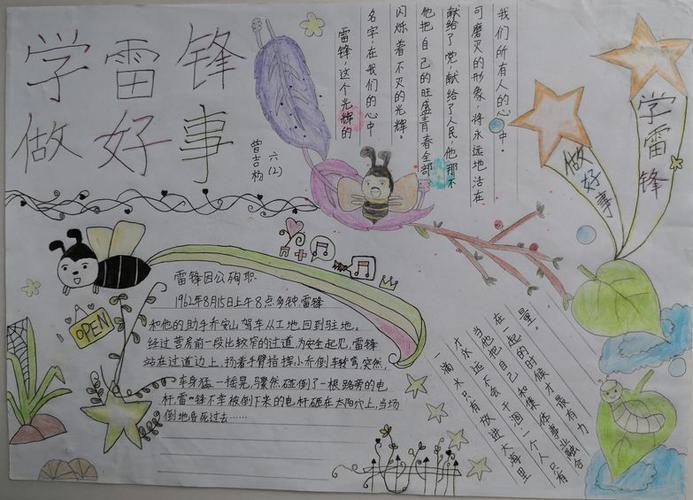 学雷锋
做好事
六(2)
雷锋,这个光辉的
名字,在我们的心中
闪烁着不灭的光辉。
他把自己的旺盛青春全部
献给了党,献给了人民,他那不
可磨灭的形象,将永远地活在
我们所有人的心中。
做好事
学雷锋
雷锋因公殉职
1962年8月15日上午8点多钟,雷锋
和他的助手乔安山驾车从工地回到驻地,
经过营房前一段比较窄的过道,为安全起见,雷锋
站在过道边上,扬着手臂指挥小乔倒车转弯,突然,
车身猛一摇晃,骤然碰倒了一根路旁的电
杆,雷锋不幸被倒下来的电杆砸在太阳穴上,当场
倒地昏死过去……
OPEN
一滴水只有放进大海里
才永远不会干涸,一个人只有
当他把自己和集体事业融合
在一起的时候才最有力
量。